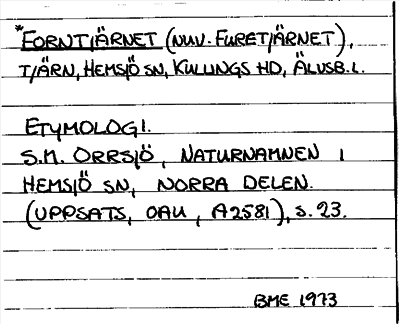 *FORNTJÄRNET (NUV. FURETJÄRNET),
TJÄRN, HEMSJÖ SN, KULLINGS HD, ÄLVSB. L.
ETYMOLOGI.
S.M. ORRSJÖ, NATURNAMNEN I
HEMSJÖ SN, NORRA DELEN.
(UPPSATS, OAU, A2581), S. 23.
BME 1973